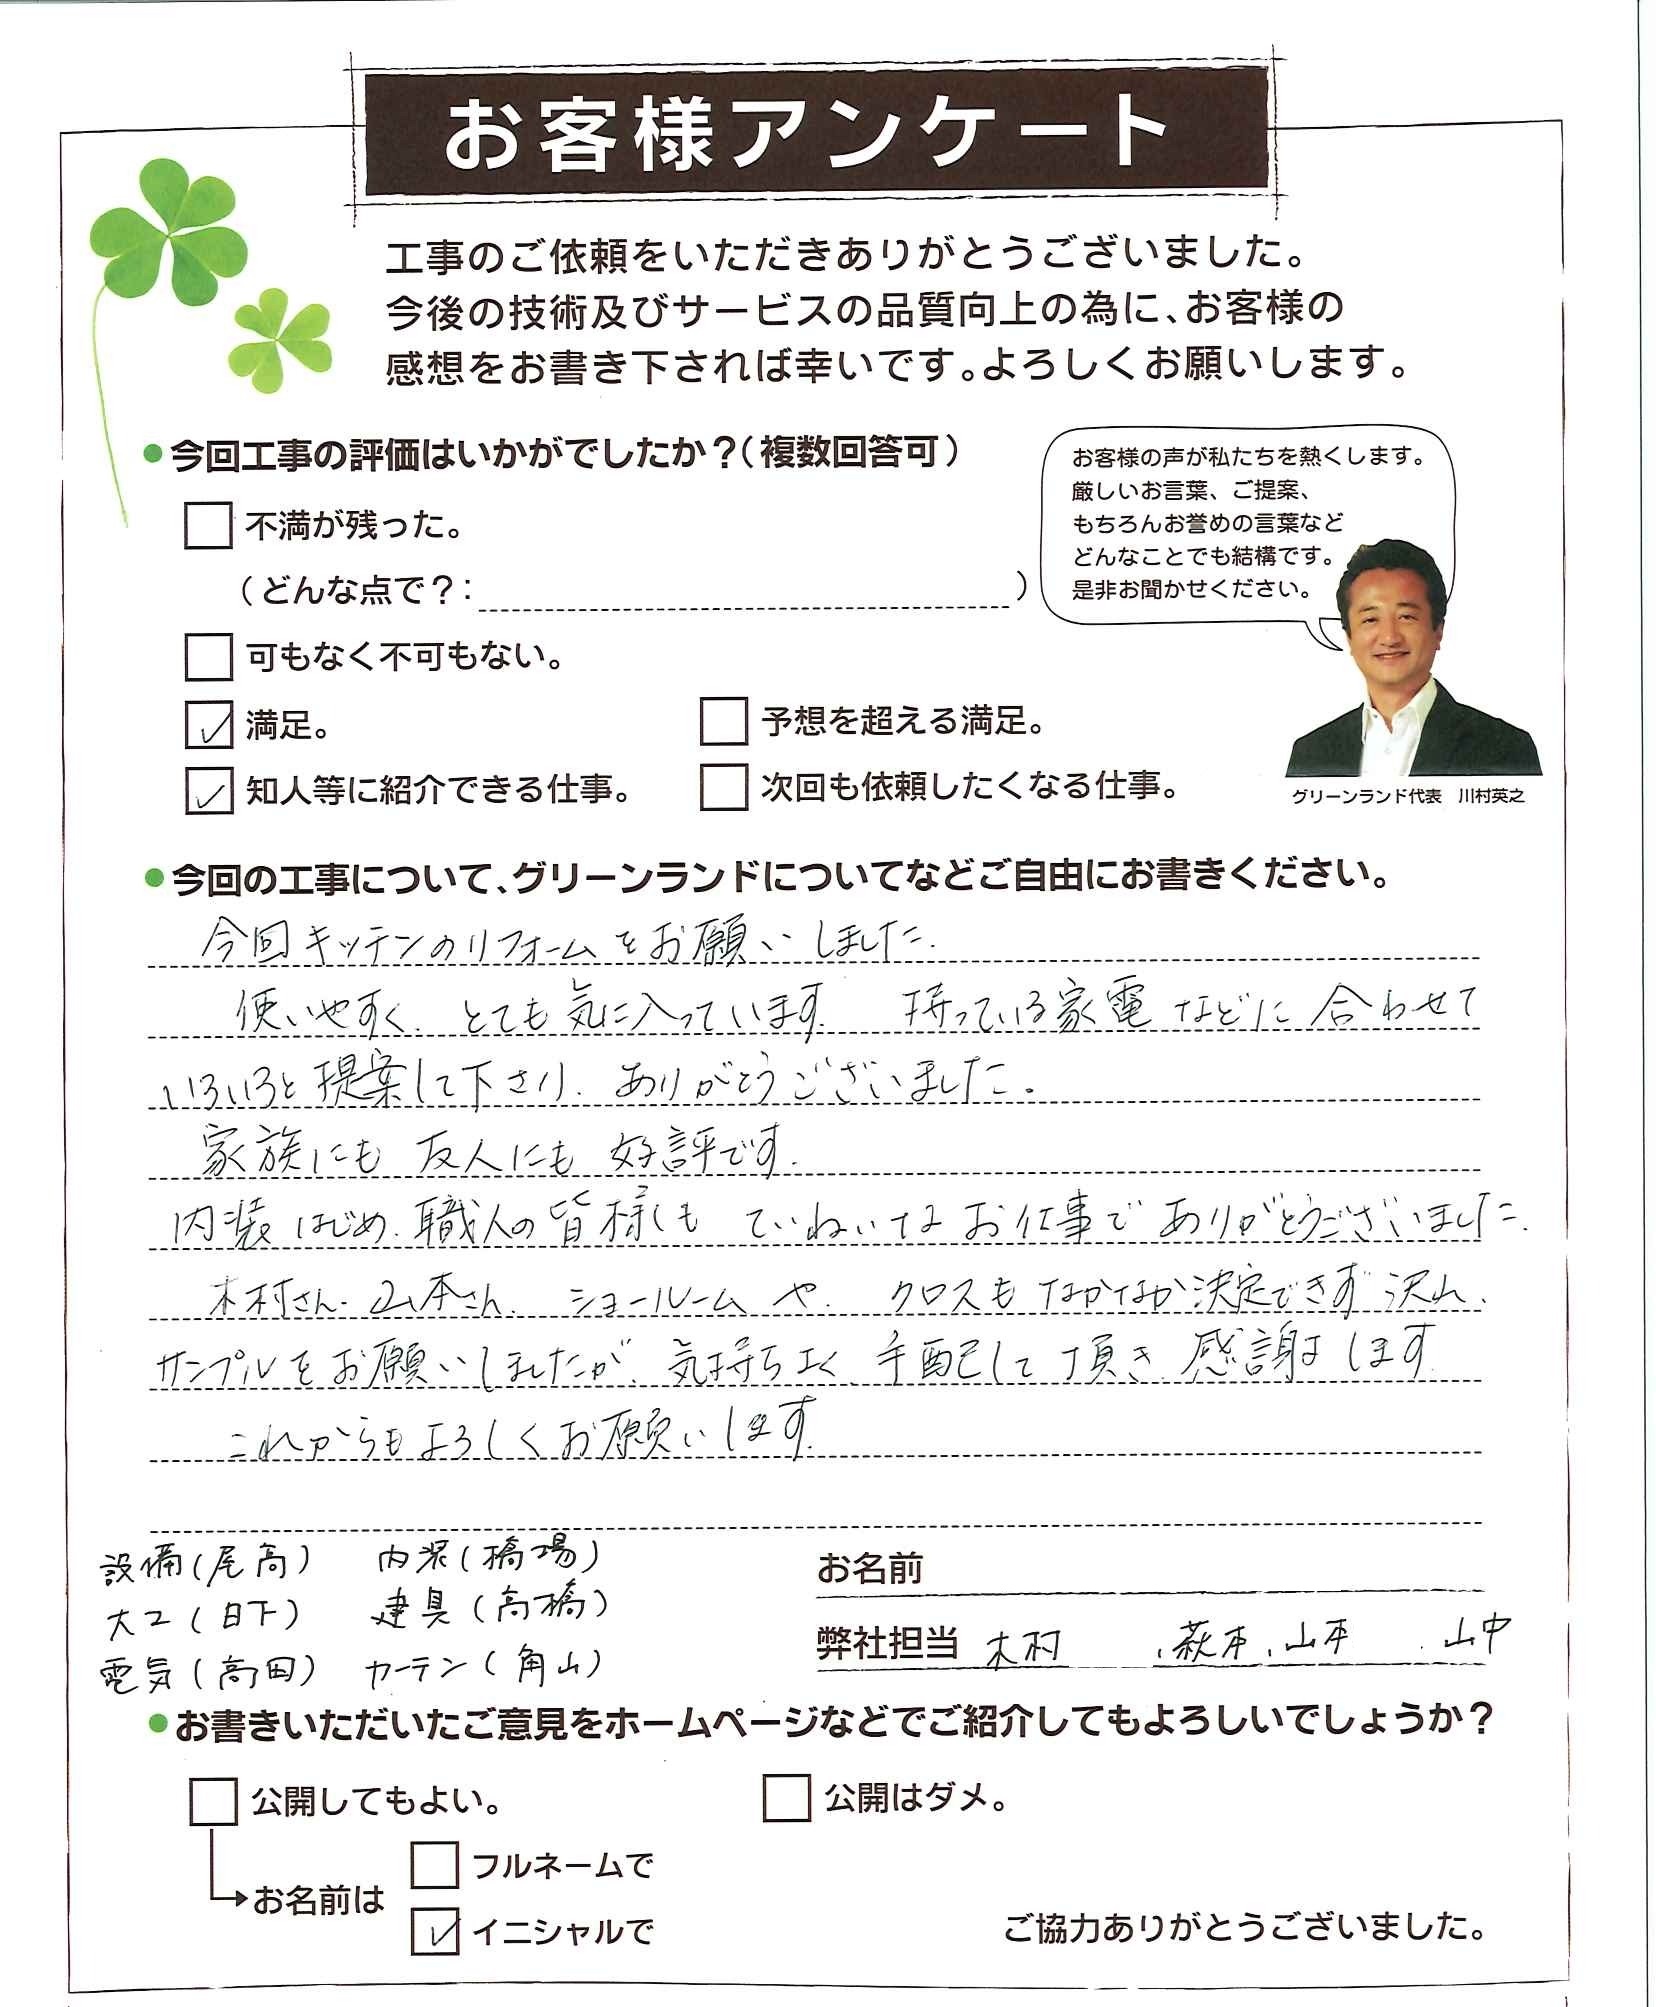 お客様アンケート
工事のご依頼をいただきありがとうございました。
今後の技術及びサービスの品質向上の為に、お客様の
感想をお書き下されば幸いです。よろしくお願いします。
●今回工事の評価はいかがでしたか？（複数回答可）
不満が残った。
（どんな点で？：　）
可もなく不可もない。
満足。
予想を超える満足。
知人等に紹介できる仕事。
次回も依頼したくなる仕事。
お客様の声が私たちを熱くします。
厳しいお言葉、ご提案、
もちろんお誉めの言葉など
どんなことでも結構です。
是非お聞かせください。
グリーンランド代表　川村英之
●今回の工事について、グリーンランドについてなどご自由にお書きください。
今回キッチンのリフォームをお願いしました.
使いやすく. とても気に入っています. 持っている家電などに合わせて
いろいろと提案して下さり. ありがとうございました。
家族にも 友人にも 好評です.
内装はじめ. 職人の皆様も ていねいなお仕事で ありがとうございました.
木村さん. 山本さん. ショールームや. クロスもなかなか決定できず 沢山、
サンプルをお願いしましたが、気持ちよく 手配して頂き. 感謝します.
これからもよろしくお願いします.
設備(尾高) 内装(橋場)
大工(日下) 建具(高橋)
電気(高田) カーテン(角山)
お名前
弊社担当 木村 、萩本、山本 、山中
●お書きいただいたご意見をホームページなどでご紹介してもよろしいでしょうか？
公開してもよい。
公開はダメ。
お名前は
フルネームで
イニシャルで
ご協力ありがとうございました。